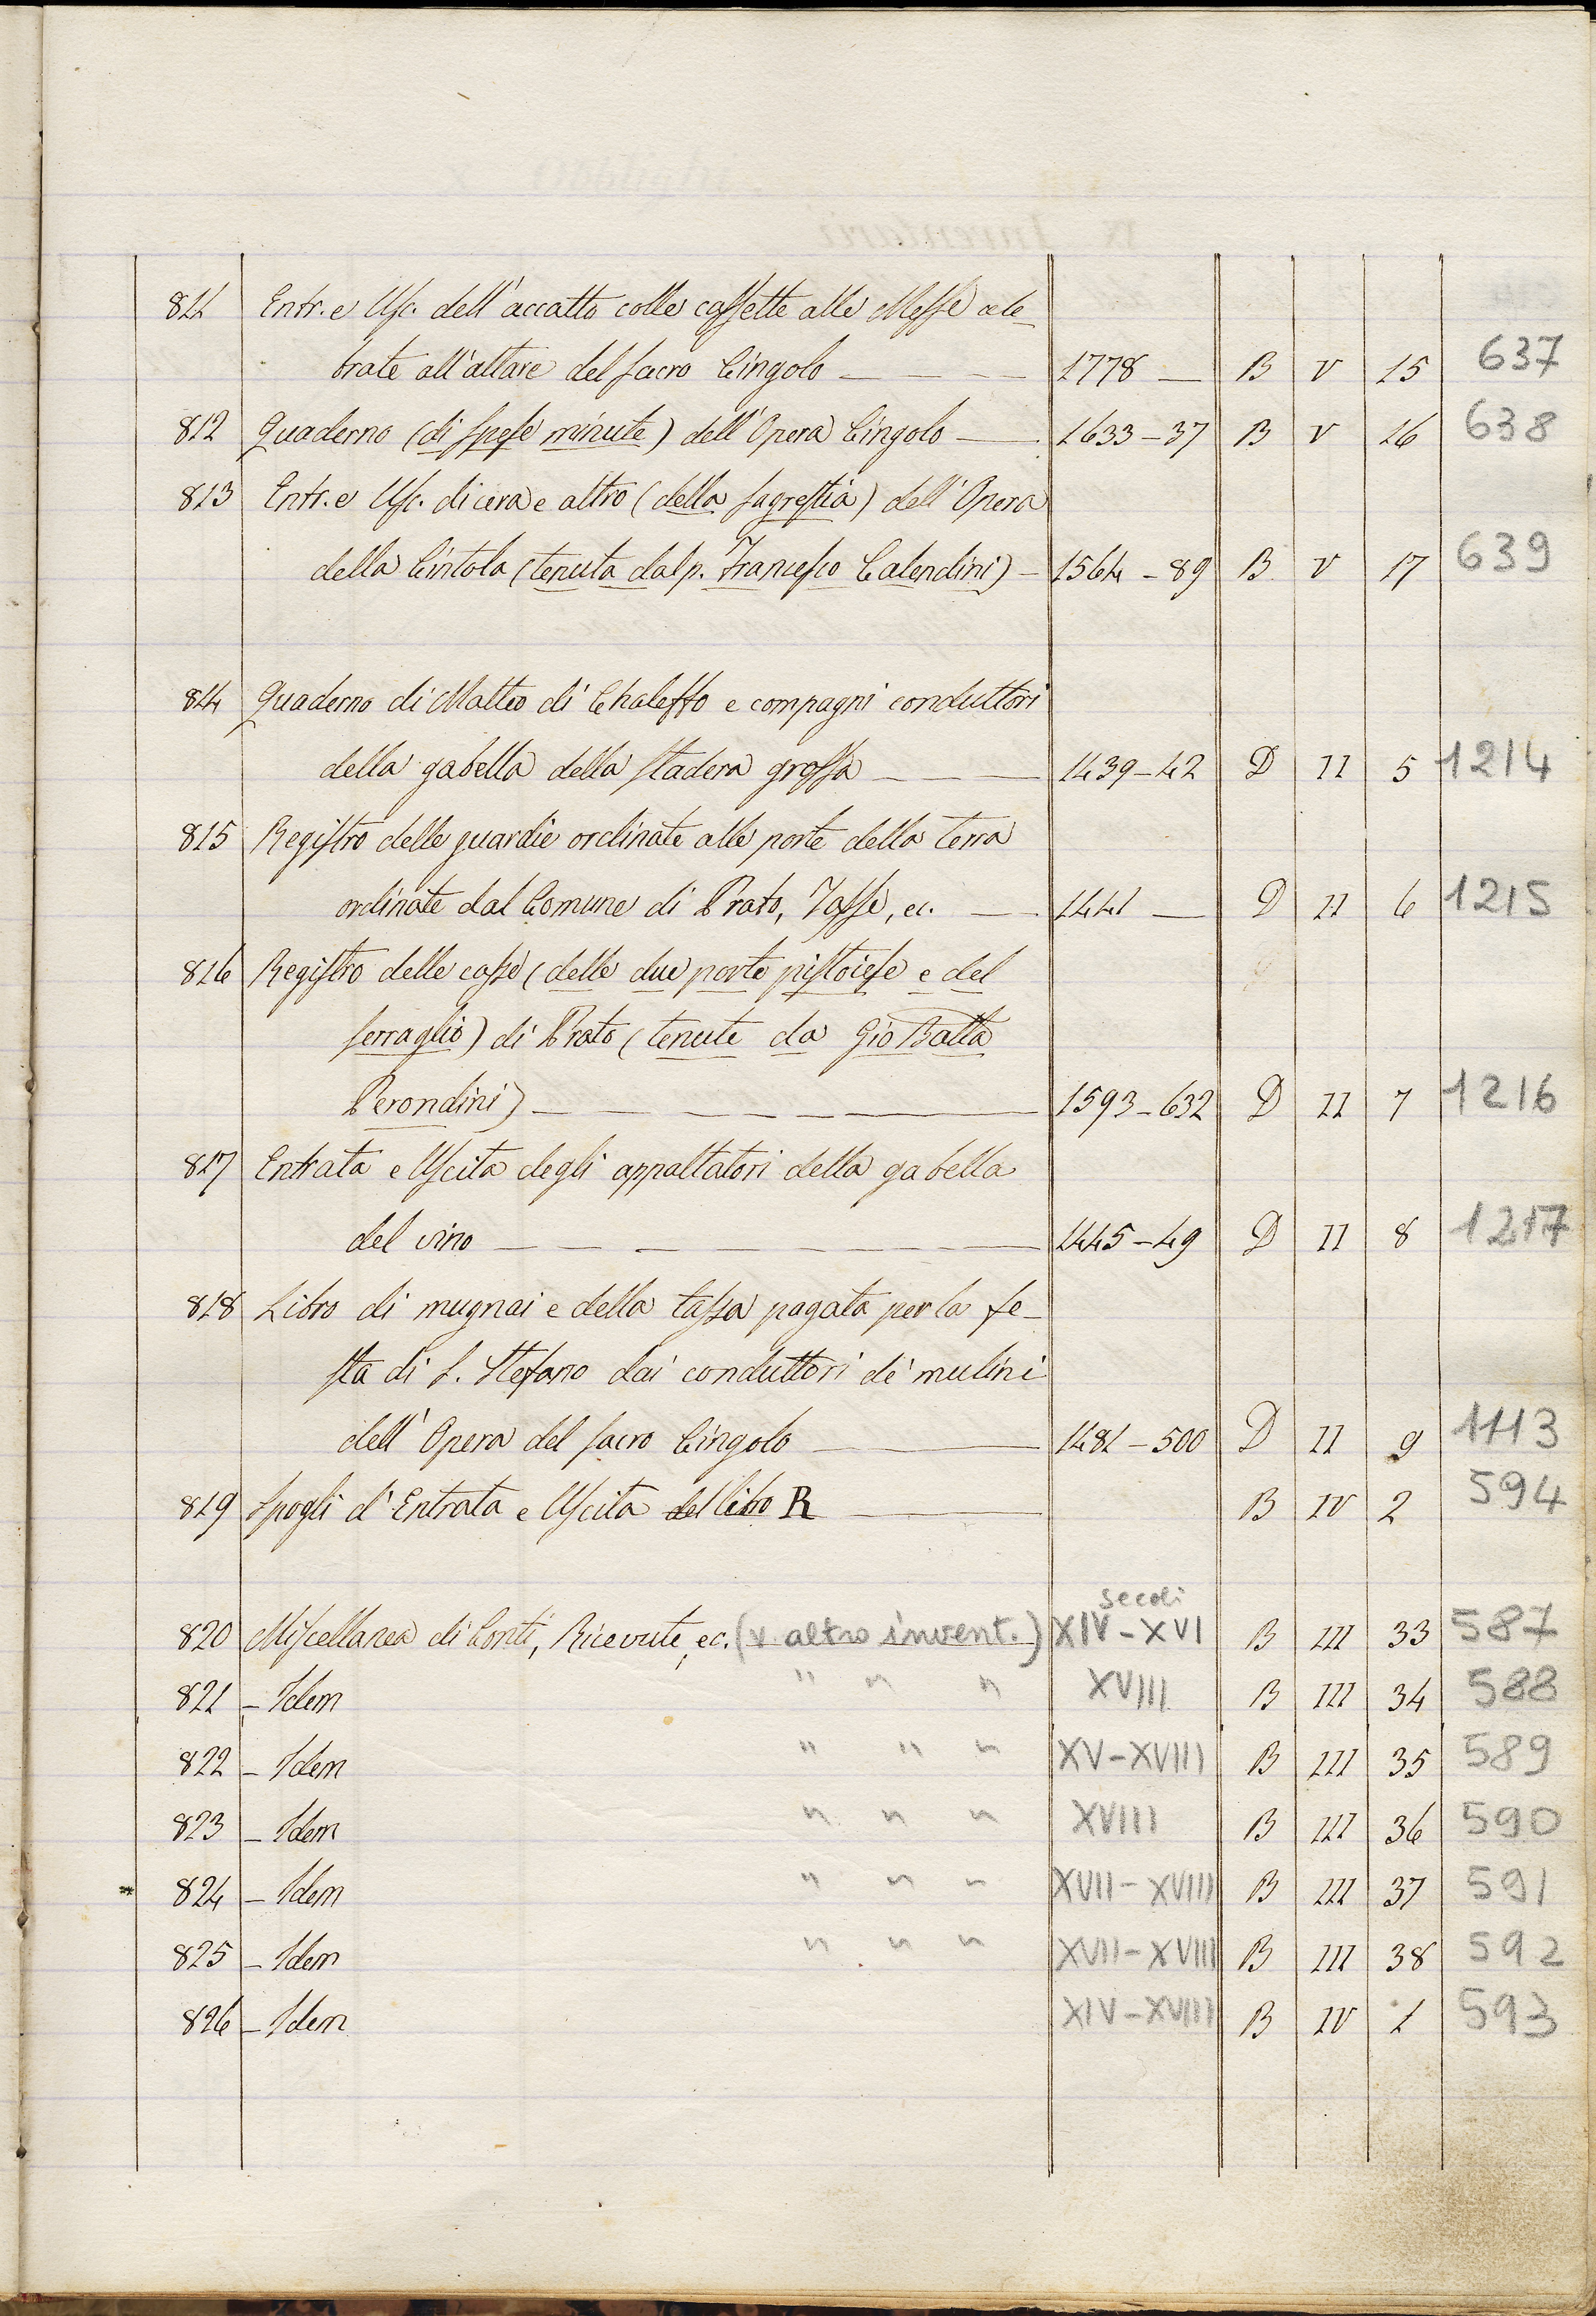 811 Entr. e Usc. dell'accatto colle cassette alle Messe cele-
brate all'altare del sacro Cingolo — 1778 — B V 15 637
812 Quaderno (di spese minute) dell'Opera Cingolo — 1633-37 B V 16 638
813 Entr. e Usc. di cera e altro (della sagrestia) dell'Opera
della Cintola (tenuta dal p. Francesco Calendini) — 1564-89 B V 17 639
814 Quaderno di Matteo di Chaleffo e compagni conduttori
della gabella della stadera grossa — 1439-42 D II 5 1214
815 Registro delle guardie ordinate alle porte della terra
ordinate dal Comune di Prato, Tasse, ec. — 1441 — D II 6 1215
816 Registro delle casse (delle due porte pistoiese e del
serraglio) di Prato (tenute da Gio Batta
Perondini) — 1593-632 D II 7 1216
817 Entrata e Uscita degli appaltatori della gabella
del vino — 1445-49 D II 8 1217
818 Libro di mugnai e della tassa pagata per la fe-
sta di S. Stefano dai conduttori de' mulini
dell'Opera del sacro Cingolo — 1481-500 D II 9 1113
819 Spogli d'Entrata e Uscita del libro R — B IV 2 594
secoli
820 Miscellanea di Conti, Ricevute, ec. (v altro invent.) XIV-XVI B III 33 587
821 - Idem " " " XVIII B III 34 588
822 - Idem " " " XV-XVIII B III 35 589
823 - Idem " " " XVIII B III 36 590
824 - Idem " " " XVII-XVIII B III 37 591
825 - Idem " " " XVII-XVIII B III 38 592
826 - Idem XIV-XVIII B IV 1 593